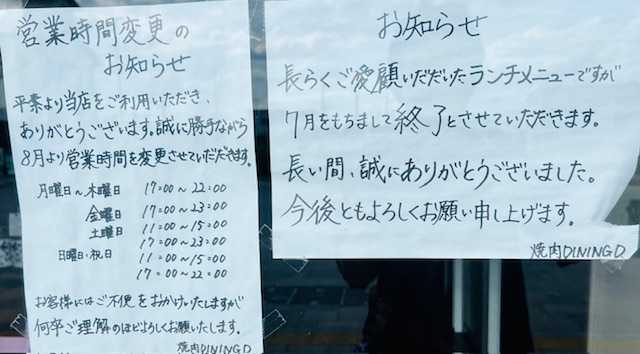 営業時間変更の
お知らせ
平素より当店をご利用いただき、
ありがとうございます。誠に勝手ながら
8月より営業時間を変更させていただきます。
月曜日〜木曜日 17:00〜22:00
金曜日 17:00〜23:00
土曜日 11:00〜15:00
17:00〜23:00
日曜日・祝日 11:00〜15:00
17:00〜22:00
お客様にはご不便をおかけいたしますが
何卒ご理解のほどよろしくお願いします。
焼肉DININGD
お知らせ
長らくご愛顧いただいたランチメニューですが
7月をもちまして終了とさせていただきます。
長い間、誠にありがとうございました。
今後ともよろしくお願い申し上げます。
焼肉DININGD